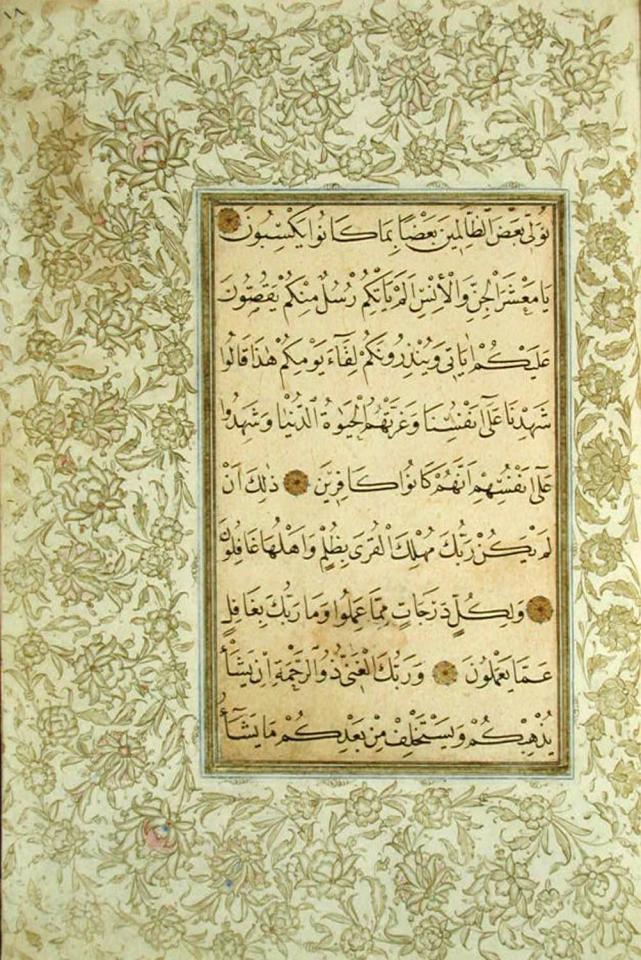 ١٨
نُوَلِّي بَعْضَ الظَّالِمِينَ بَعْضًا بِمَا كَانُوا يَكْسِبُونَ
يَا مَعْشَرَ الْجِنِّ وَالْأِنْسِ اَلَمْ يَأْتِكُمْ رُسُلٌ مِنْكُمْ يَقُصُّونَ
عَلَيْكُمْ اٰيَاتِي وَيُنْذِرُونَكُمْ لِقَٓاءَ يَوْمِكُمْ هٰذَا قَالُوا
شَهِدْنَا عَلٰٓى اَنْفُسِنَا وَغَرَّتْهُمُ الْحَيٰوةُ الدُّنْيَا وَشَهِدُوا
عَلٰٓى اَنْفُسِهِمْ اَنَّهُمْ كَانُوا كَافِرِينَ ذٰلِكَ اَنْ
لَمْ يَكُنْ رَبُّكَ مُهْلِكَ الْقُرٰى بِظُلْمٍ وَاَهْلُهَا غَافِلُونَ
وَلِكُلٍّ دَرَجَاتٌ مِمَّا عَمِلُوا وَمَا رَبُّكَ بِغَافِلٍ
عَمَّا يَعْمَلُونَ وَرَبُّكَ الْغَنِيُّ ذُو الرَّحْمَةِ اِنْ يَشَأْ
يُذْهِبْكُمْ وَيَسْتَخْلِفْ مِنْ بَعْدِكُمْ مَا يَشَٓاءُ